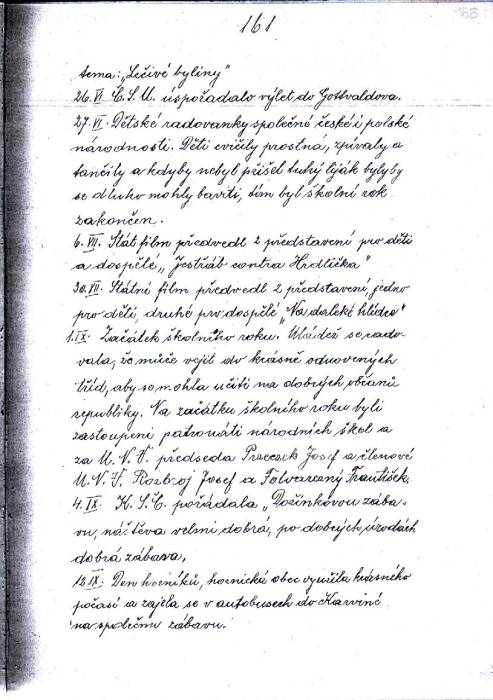 161
téma: "Léčivé byliny"
26.VI. Č.S.M. uspořádalo výlet do Gottvaldova.
27.VI. Dětské radovanky společné české i polské
národnosti. Děti cvičily prostna, zpívaly a
tančily a kdyby nebyl přišel tuhý liják bylyby
se dlouho mohly baviti, tím byl školní rok
zakončen.
6. VII. Stát. film předvedl 2 představení pro děti
a dospělé "Jestřáb contra Hrdlička"
30.VII. Státní film předvedl 2 představení, jedno
pro děti, druhé pro dospělé "Na daleké hlídce"
1.IX. Začátek školního roku. Mládež se rado-
vala, že může vejít do krásně odnovených
tříd, aby se mohla učiti na dobrých občanů
republiky. Na začátku školního roku byli
zastoupeni patronáti národních škol a
za M.N.V. předseda Przeczek Josef a členové
M.N.V. Rozbroj Josef a Folwarczný František.
4.IX. K.S.Č. pořádala "Dožínkovou zába-
vu, návštěva velmi dobrá, po dobrých úrodách
dobrá zábava,
12.IX. Den horníků, hornická obec využila krásného
počasí a zajela se v autobusech do Karviné
na společnou zábavu.